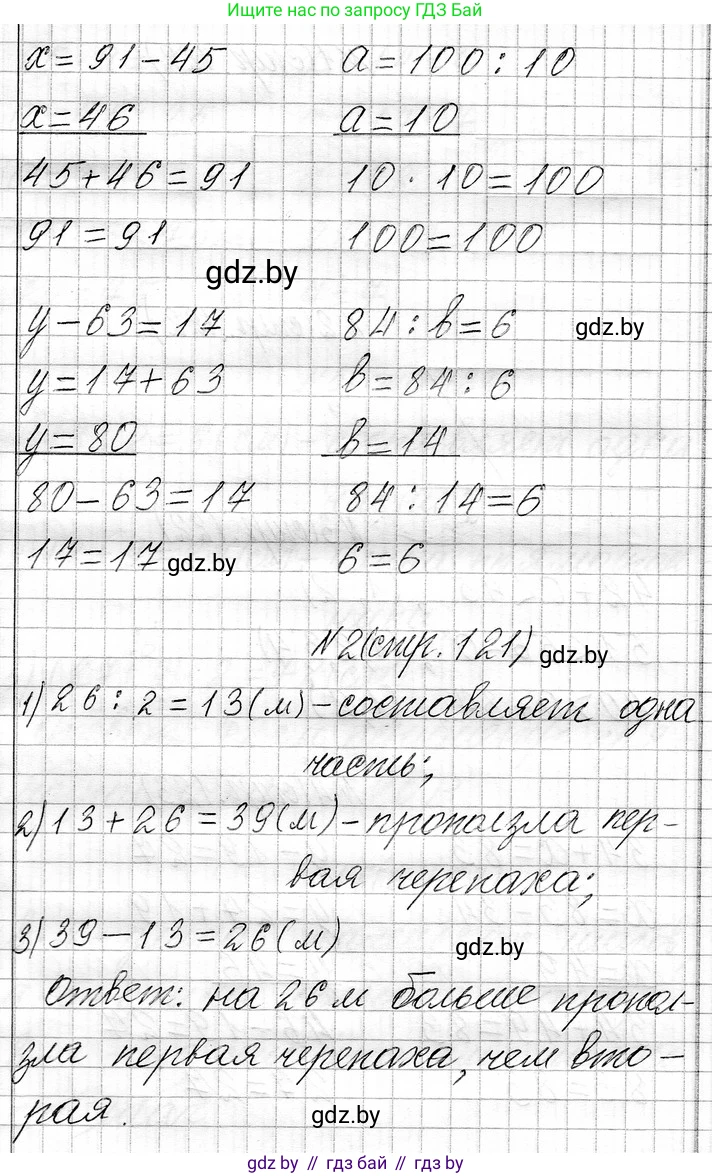 Ищите нас по запросу ГДЗ Бай
x = 91 - 45 a = 100 : 10
x = 46 a = 10
45 + 46 = 91 10 · 10 = 100
91 = 91 100 = 100
gdz.by
y - 63 = 17 84 : b = 6 gdz.by
y = 17 + 63 b = 84 : 6
y = 80 b = 14
80 - 63 = 17 84 : 14 = 6
17 = 17 gdz.by 6 = 6
№2 (стр. 121) gdz.by
1) 26 : 2 = 13 (м) - составляет одна
часть;
2) 13 + 26 = 39 (м) - проползла пер-
вая черепаха;
3) 39 - 13 = 26 (м)
gdz.by
Ответ: на 26 м больше пропол-
зла первая черепаха, чем вто-
рая. gdz.by
gdz.by // гдз бай // gdz.by